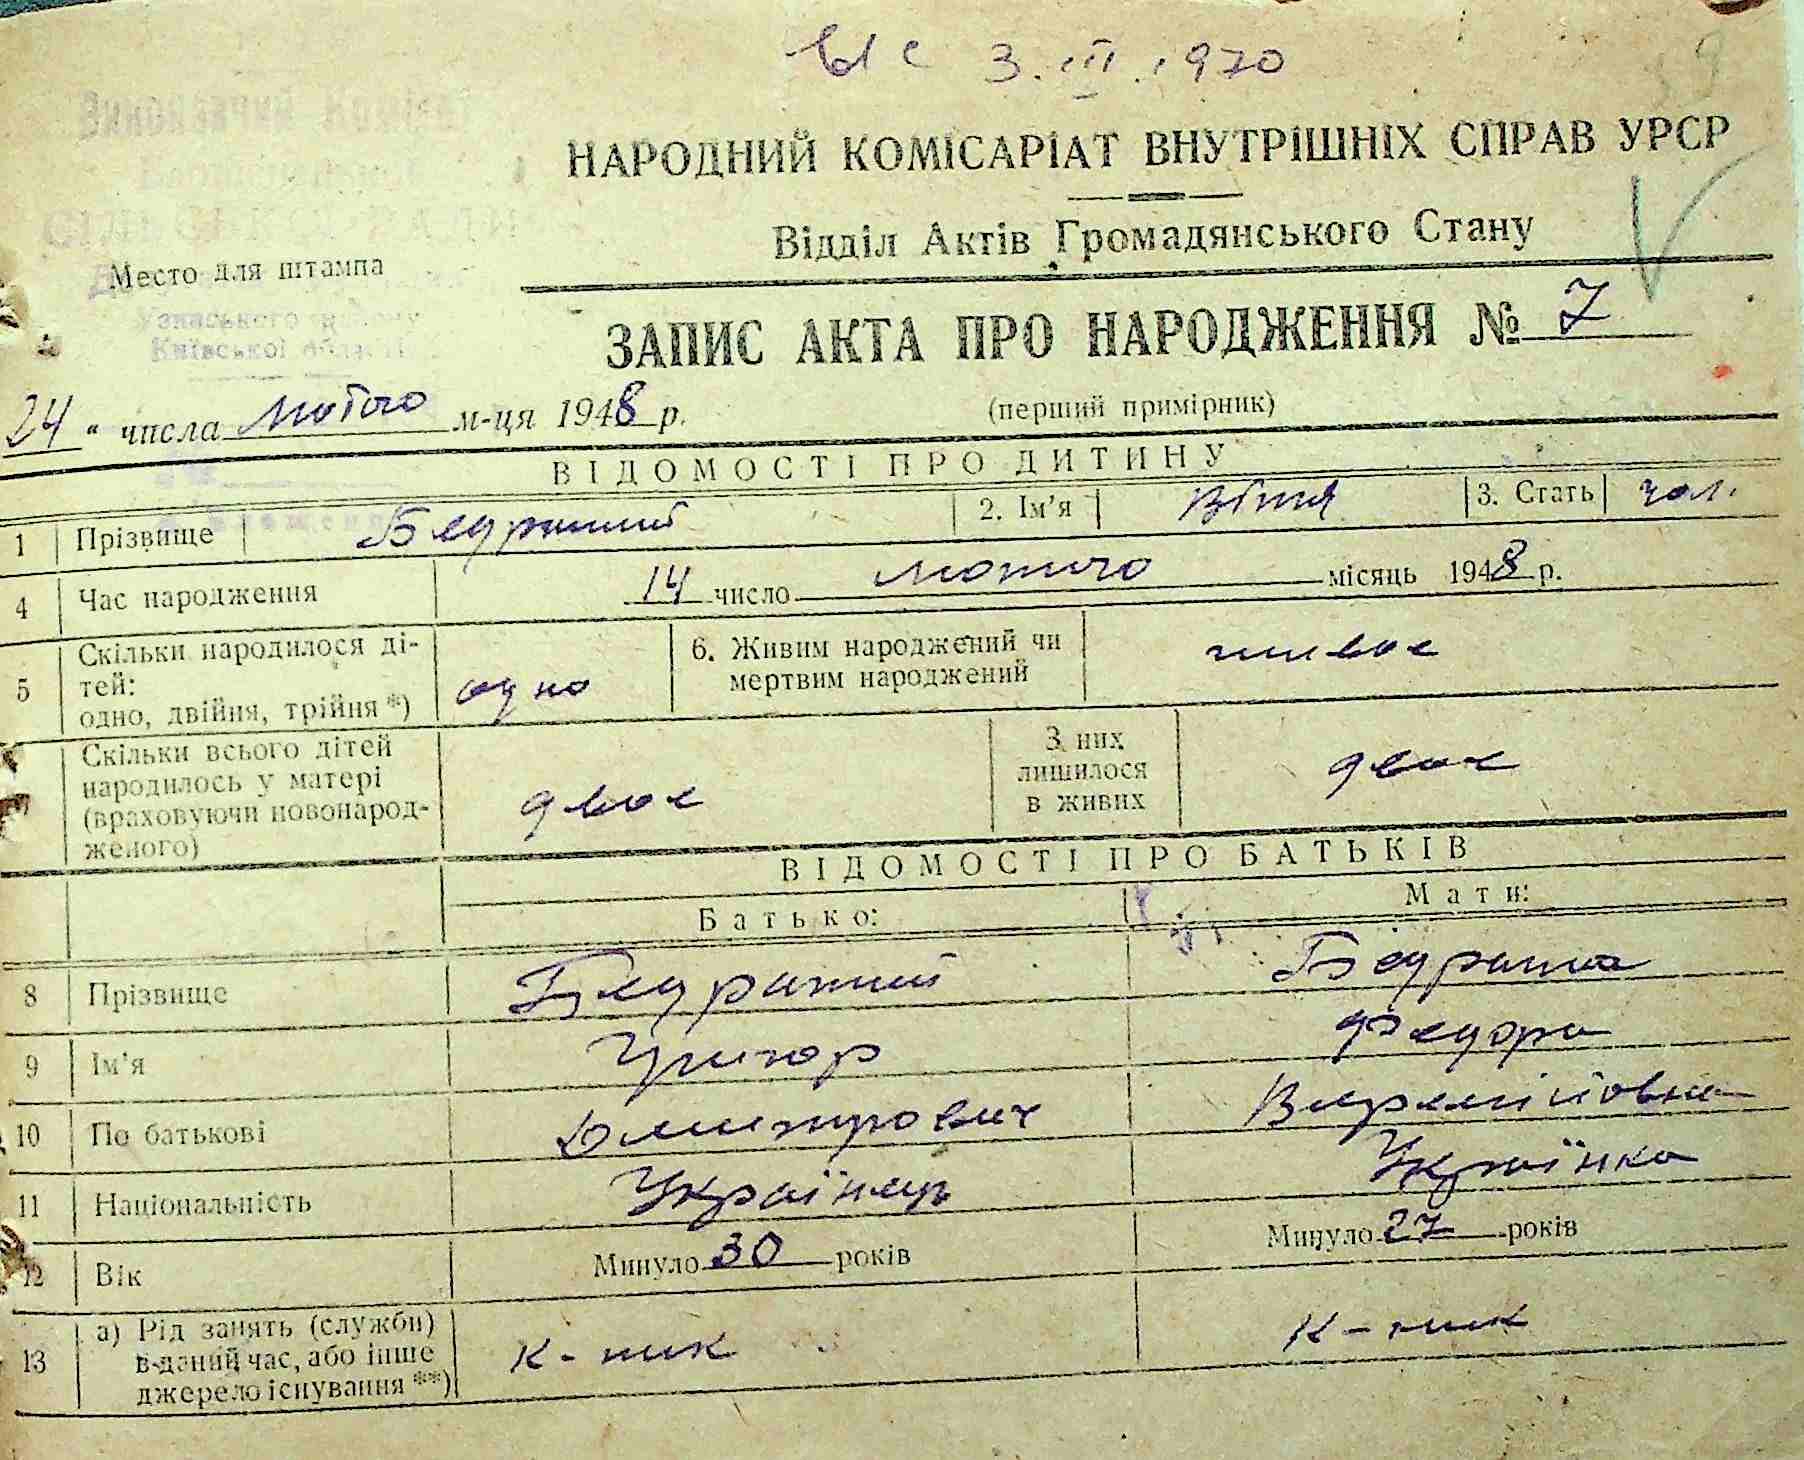 3.III.1970
НАРОДНИЙ КОМІСАРІАТ ВНУТРІШНІХ СПРАВ УРСР
Відділ Актів Громадянського Стану
Место для штампа
Київської області
ЗАПИС АКТА ПРО НАРОДЖЕННЯ № 7
24 " числа лютого м-ця 1948 р.
(перший примірник)
ВІДОМОСТІ ПРО ДИТИНУ
1 Прізвище 2. Ім'я Вітя 3. Стать чол.
4 Час народження 14 число лютого місяць 1948 р.
5 Скільки народилося ді-
тей:
одно, двійня, трійня *) одно 6. Живим народжений чи
мертвим народжений живое
Скільки всього дітей
народилось у матері
(враховуючи новонарод-
женого) двое З них
лишилося
в живих двое
ВІДОМОСТІ ПРО БАТЬКІВ
Батько: Мати:
8 Прізвище
9 Ім'я Григор Федора
10 По батькові Дмитрович
11 Національність Українець Українка
12 Вік Минуло 30 років Минуло 27 років
13 а) Рід занять (служби)
в даний час, або інше
джерело існування **) к-ник к-ник